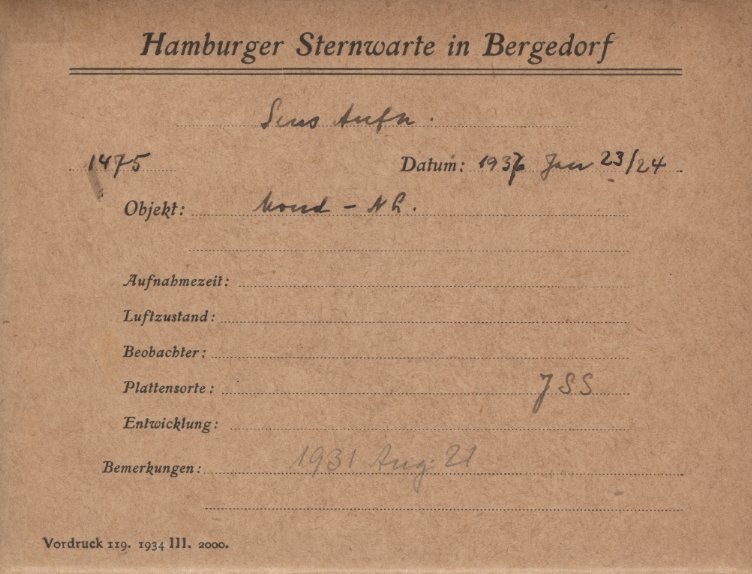 Hamburger Sternwarte in Bergedorf
Aufn.
1475 Datum: 1937 Jan 23/24
Objekt: Mond -
Aufnahmezeit:
Luftzustand:
Beobachter:
Plattensorte: JSS
Entwicklung:
Bemerkungen: 1931 Aug. 21
Vordruck 119. 1934 III. 2000.